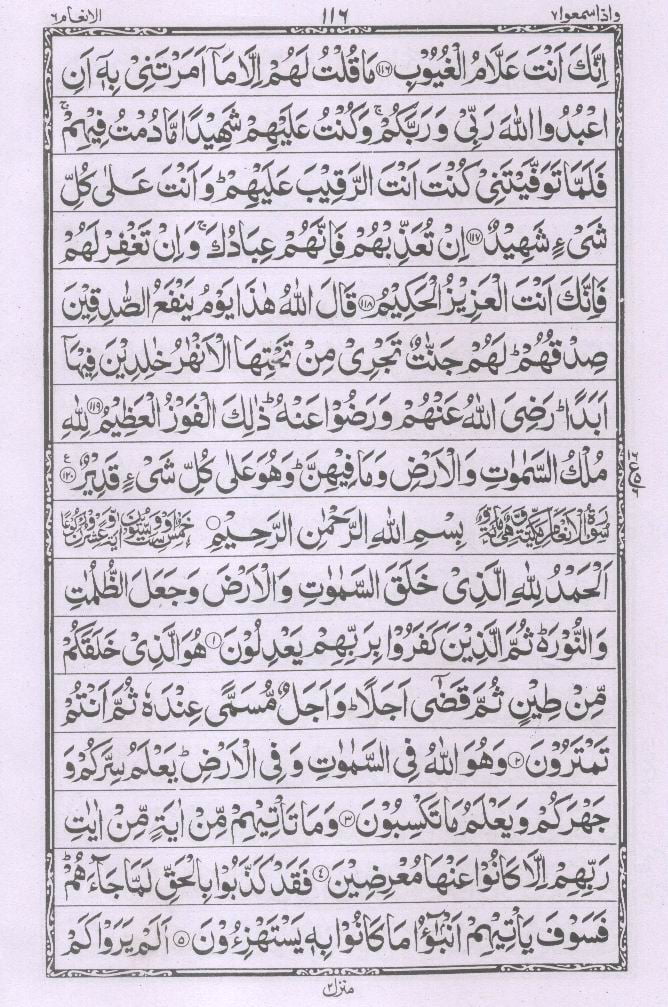 واذا سمعوا ٧ ١١٦ الانعام ٦
اِنَّكَ اَنْتَ عَلَّامُ الْغُيُوْبِ ۝۱۱۶ مَا قُلْتُ لَهُمْ اِلَّا مَاۤ اَمَرْتَنِيْ بِهٖۤ اَنِ
اعْبُدُوا اللّٰهَ رَبِّيْ وَرَبَّكُمْ ۚ وَكُنْتُ عَلَيْهِمْ شَهِيْدًا مَّا دُمْتُ فِيْهِمْ ۚ
فَلَمَّا تَوَفَّيْتَنِيْ كُنْتَ اَنْتَ الرَّقِيْبَ عَلَيْهِمْ ؕ وَاَنْتَ عَلٰى كُلِّ
شَيْءٍ شَهِيْدٌ ۝۱۱۷ اِنْ تُعَذِّبْهُمْ فَاِنَّهُمْ عِبَادُكَ ۚ وَاِنْ تَغْفِرْ لَهُمْ
فَاِنَّكَ اَنْتَ الْعَزِيْزُ الْحَكِيْمُ ۝۱۱۸ قَالَ اللّٰهُ هٰذَا يَوْمُ يَنْفَعُ الصّٰدِقِيْنَ
صِدْقُهُمْ ؕ لَهُمْ جَنّٰتٌ تَجْرِيْ مِنْ تَحْتِهَا الْاَنْهٰرُ خٰلِدِيْنَ فِيْهَاۤ
اَبَدًا ؕ رَضِيَ اللّٰهُ عَنْهُمْ وَرَضُوْا عَنْهُ ؕ ذٰلِكَ الْفَوْزُ الْعَظِيْمُ ۝۱۱۹ لِلّٰهِ
مُلْكُ السَّمٰوٰتِ وَالْاَرْضِ وَمَا فِيْهِنَّ ؕ وَهُوَ عَلٰى كُلِّ شَيْءٍ قَدِيْرٌ ۝۱۲۰
سُوْرَةُ الْاَنْعَامِ مَكِّيَّةٌ وَّهِيَ مِائَةٌ وَّ بِسْمِ اللّٰهِ الرَّحْمٰنِ الرَّحِيْمِ ۝ خَمْسٌ وَّسِتُّوْنَ اٰيَةً وَّعِشْرُوْنَ رُكُوْعًا
اَلْحَمْدُ لِلّٰهِ الَّذِيْ خَلَقَ السَّمٰوٰتِ وَالْاَرْضَ وَجَعَلَ الظُّلُمٰتِ
وَالنُّوْرَ ؕ ثُمَّ الَّذِيْنَ كَفَرُوْا بِرَبِّهِمْ يَعْدِلُوْنَ ۝۱ هُوَ الَّذِيْ خَلَقَكُمْ
مِّنْ طِيْنٍ ثُمَّ قَضٰۤى اَجَلًا ؕ وَاَجَلٌ مُّسَمًّى عِنْدَهٗ ثُمَّ اَنْتُمْ
تَمْتَرُوْنَ ۝۲ وَهُوَ اللّٰهُ فِي السَّمٰوٰتِ وَفِي الْاَرْضِ ؕ يَعْلَمُ سِرَّكُمْ وَ
جَهْرَكُمْ وَيَعْلَمُ مَا تَكْسِبُوْنَ ۝۳ وَمَا تَاْتِيْهِمْ مِّنْ اٰيَةٍ مِّنْ اٰيٰتِ
رَبِّهِمْ اِلَّا كَانُوْا عَنْهَا مُعْرِضِيْنَ ۝۴ فَقَدْ كَذَّبُوْا بِالْحَقِّ لَمَّا جَآءَهُمْ ؕ
فَسَوْفَ يَاْتِيْهِمْ اَنْۢبٰٓؤُا مَا كَانُوْا بِهٖ يَسْتَهْزِءُوْنَ ۝۵ اَلَمْ يَرَوْا كَمْ
منزل ٢